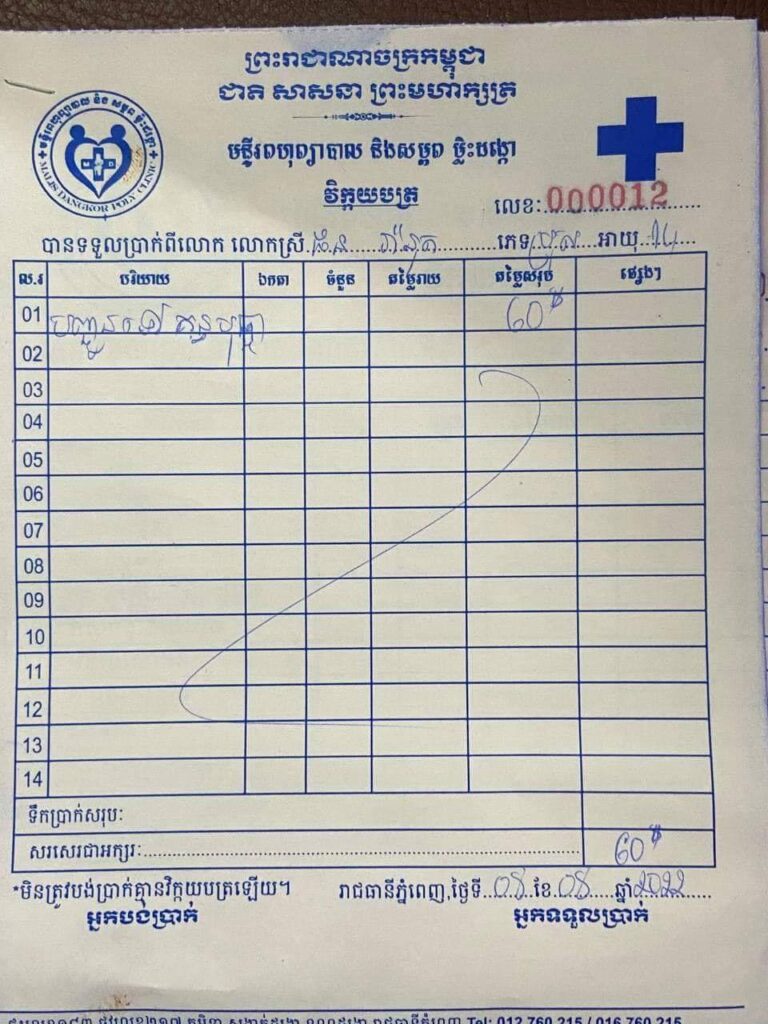 ព្រះរាជាណាចក្រកម្ពុជា
ជាតិ សាសនា ព្រះមហាក្សត្រ
មន្ទីរពហុព្យាបាល និងសម្ភព ម្លិះដង្កោ
MALIS DANGKOR POLY CLINIC
វិក្កយបត្រ
លេខ:000012
បានទទួលប្រាក់ពីលោក លោកស្រី ភេទ ប្រុស អាយុ 14
ល.រ បរិយាយ ឯកតា ចំនួន តម្លៃរាយ តម្លៃសរុប ផ្សេងៗ
01 បញ្ជូនទៅ គន្ធបុប្ផា 60$
02
03
04
05
06
07
08
09
10
11
12
13
14
ទឹកប្រាក់សរុប:
សរសេរជាអក្សរ: 60$
*មិនត្រូវបង់ប្រាក់គ្មានវិក្កយបត្រឡើយ។ រាជធានីភ្នំពេញ,ថ្ងៃទី 08 ខែ 08 ឆ្នាំ 2022
អ្នកបង់ប្រាក់ អ្នកទទួលប្រាក់
Tel: 012 760 215 / 016 760 215